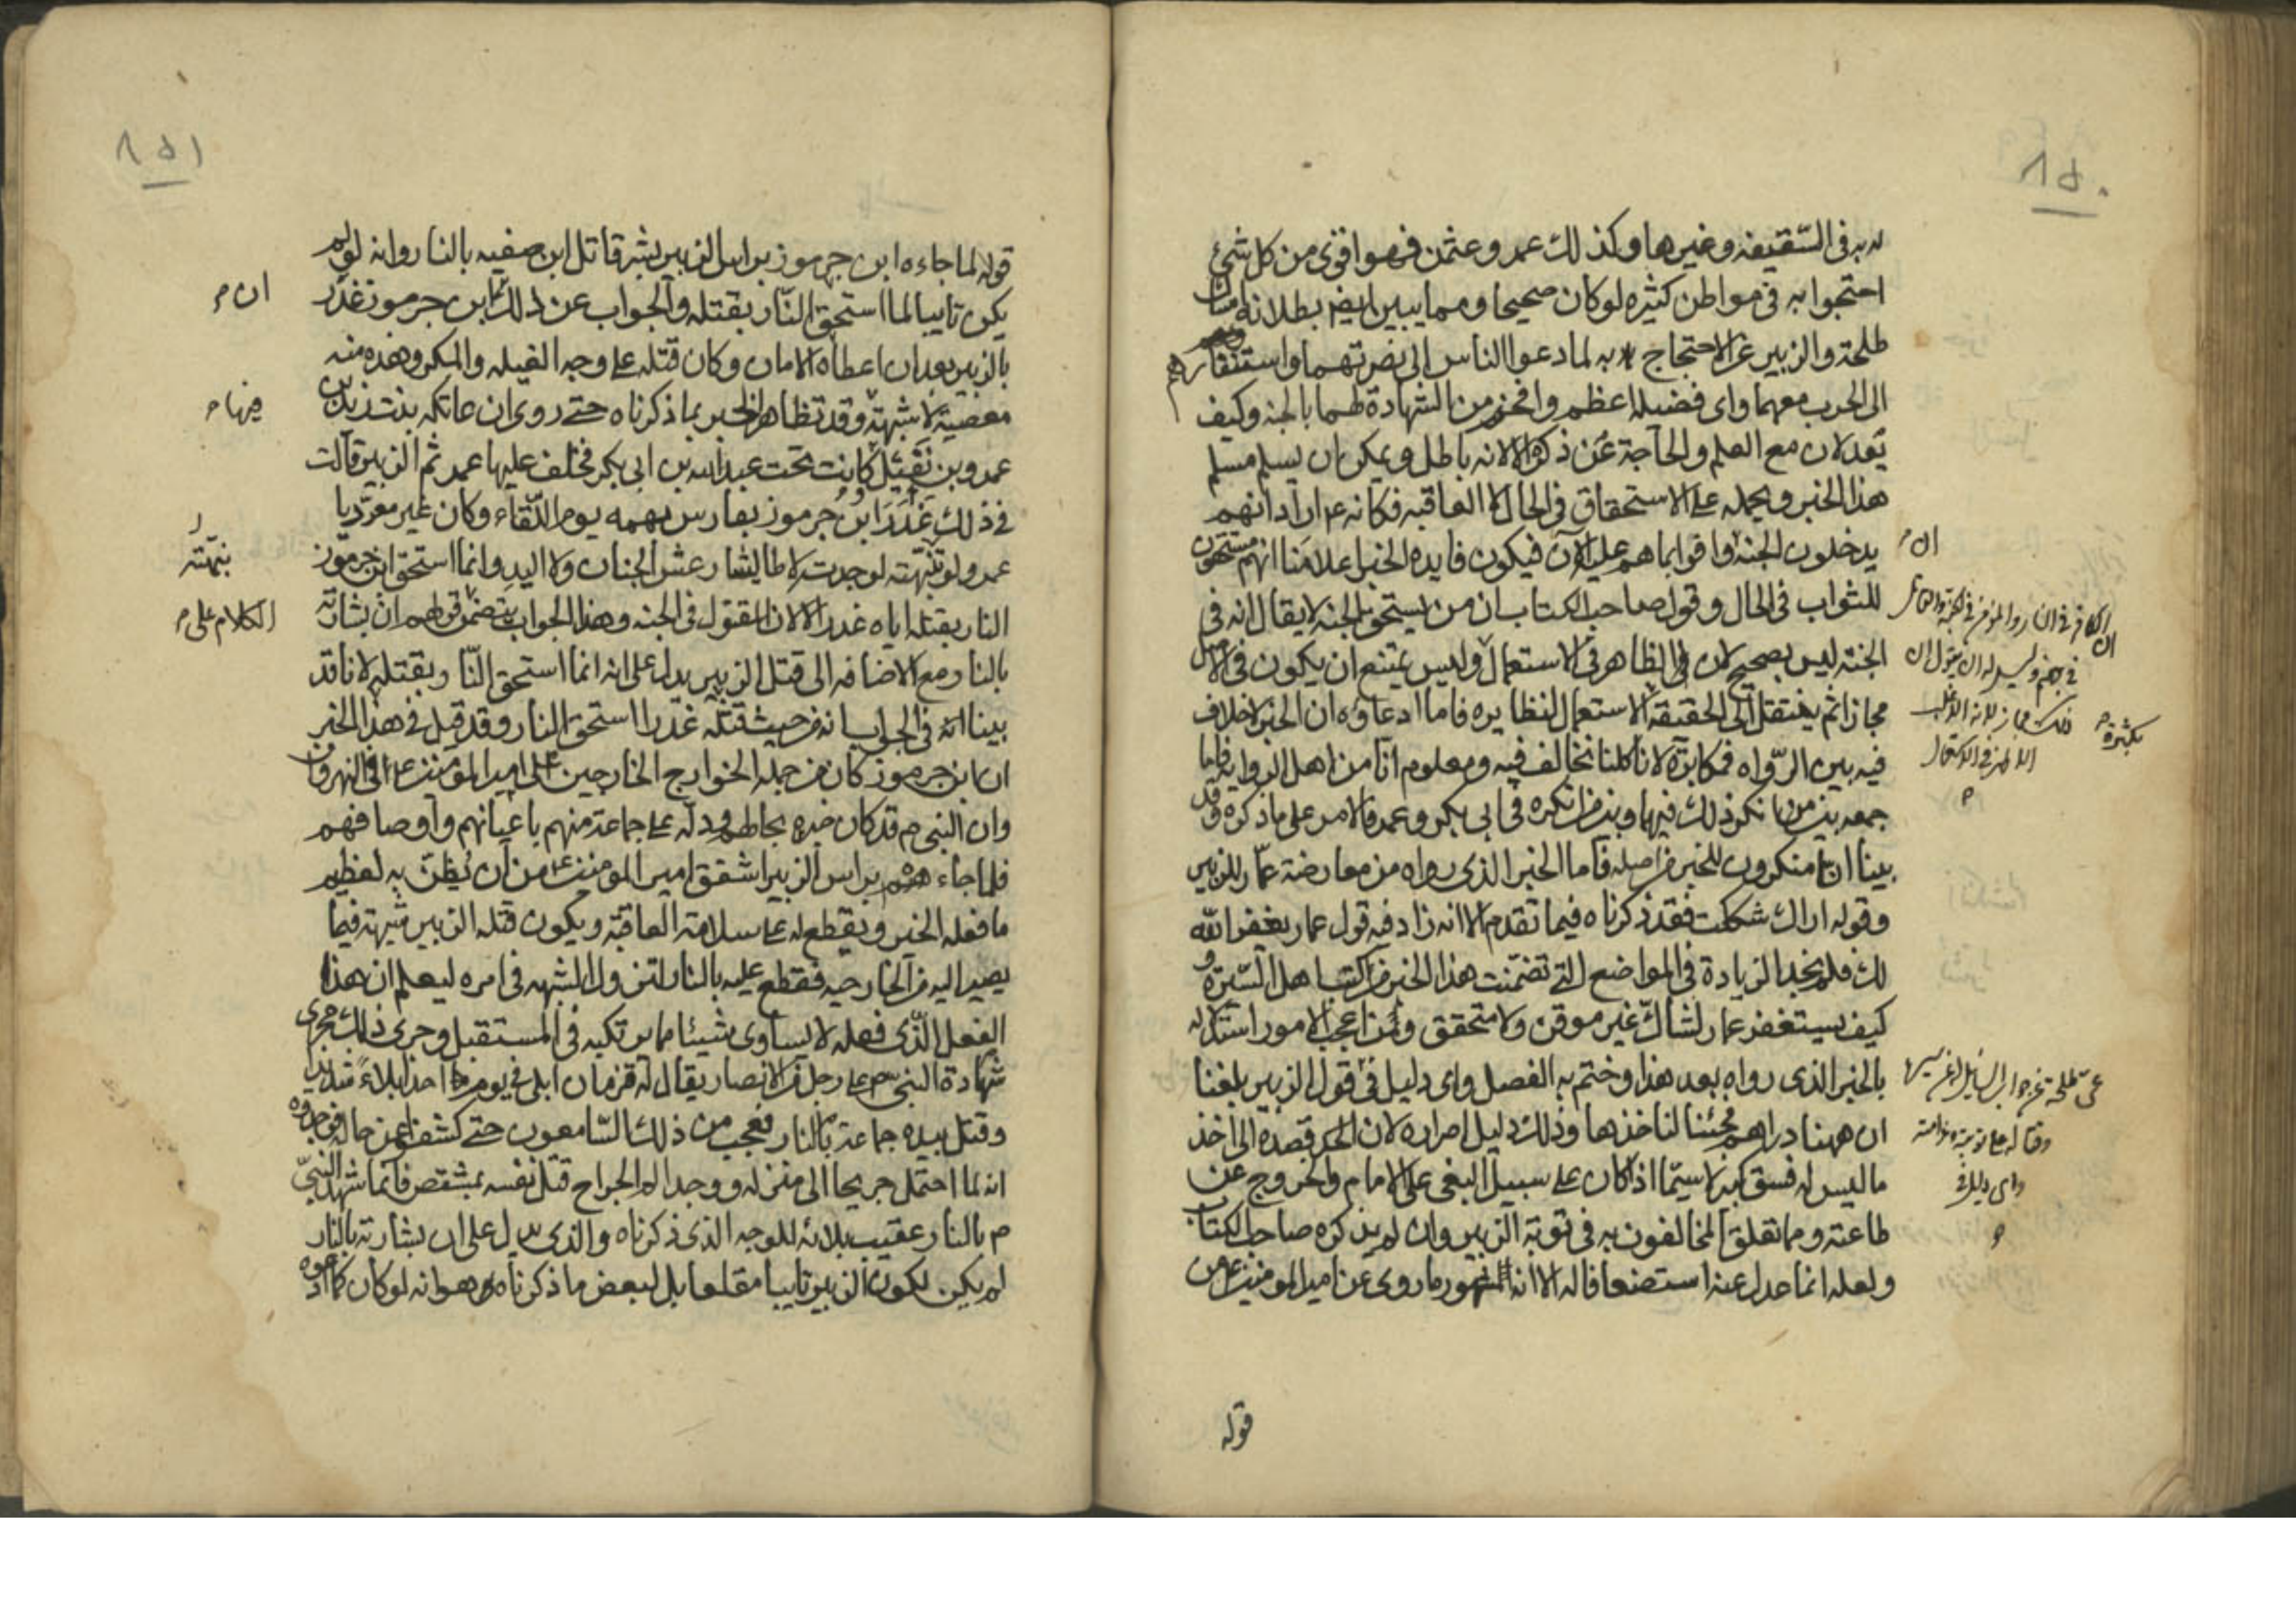 ٨٥٠
له به في السقيفه وغيرها وكذلك عمر وعثمن فهو اقوى من كل شئ
احتجوا به في مواطن كثيره لو كان صحيحا ومما يبين ايضا بطلانه امساك
طلحة والزبير عن الاحتجاج به لما دعوا الناس الى نصرتهما واستنفارهم
الى الحرب معهما واي فضيله اعظم وافخم من الشهادة لهما بالجنه وكيف
يعدلان مع العلم والحاجة عن ذكره الا لانه باطل ويمكن ان يسلم مسلم
هذا الخبر ويحمله على الاستحقاق في الحال لا العاقبه فكانه ع اراد انهم
يدخلون الجنة ان وافوا بما هم عليه الآن فيكون فايده الخبر اعلامنا انهم مستحقون
للثواب في الحال وقول صاحب الكتاب ان من يستحق الجنه لا يقال انه في
الجنة ليس بصحيح لان الظاهر في الاستعمال وليس يمتنع ان يكون في الاصل
مجازا ثم ينتقل الى الحقيقة الاستعمال لنظايره فاما ادعاؤه ان الخبر لا خلاف
فيه بين الرواه فمكابرة لانا كلنا نخالف فيه ومعلوم انا من اهل الرواية فاما
جمعه بين من ينكر ذلك فيها وبين من انكره في ابي بكر وعمر فالامر على ما ذكره وقد
بينا انا منكرون للخبر من اصله فاما الخبر الذي رواه من معارضة عمار للزبير
وقوله اراك شككت فقد ذكرناه فيما تقدم الا انه زاد فيه قول عمار يغفر الله
لك فلم نجد الزيادة في المواضع التي تضمنت هذا الخبر من كتب اهل السيرة و
كيف يستغفر عمار لشاك غير موقن ولا متحقق ومن اعجب الامور استدلاله
بالخبر الذي رواه بعد هذا وختم به الفصل واي دليل في قول الزبير بلغنا
ان ههنا دراهم فجئنا لناخذها وذلك دليل اصراره لان قصده الى اخذ
ما ليس له فسق كبير لا سيما اذا كان على سبيل البغي على الامام والخروج عن
طاعته ومما تعلق المخالفون به في توبة الزبير وان لم يذكره صاحب الكتاب
ولعله انما عدل عنه استضعافا له الا انه المشهور ما روى عن امير المومنين ع من
قوله
ان
بكثرة
واي دليل في
٨٥١
قوله لما جاءه ابن جرموز براس الزبير بشر قاتل ابن صفيه بالنار وانه لو لم
يكن تايبا لما استحق النار بقتله والجواب عن ذلك ان ابن جرموز غدر
بالزبير بعد ان اعطاه الامان وكان قتله على وجه الغيله والمكر وهذه منه
معصية لا شبهة فيها وقد تظاهر الخبر بما ذكرناه حتى روى ان عاتكه بنت زيد بن
عمرو بن نفيل كانت تحت عبد الله بن ابي بكر فخلف عليها عمر ثم الزبير قالت
في ذلك غدر ابن جرموز بفارس بهمه يوم اللقاء وكان غير معرد يا
عمرو لو نبهته لوجدته لا طايشا رعش الجنان ولا اليد وانما استحق ابن جرموز
النار بقتله اياه غدرا لا لان المقتول في الجنه وهذا الجواب يتضمن قولهم ان بشارته
بالنار مع الاضافه الى قتل الزبير يدل على انه انما استحق النار بقتله لانا قد
بينا انه في الجواب انه من حيث قتله غدرا استحق النار وقد قيل في هذا الخبر
ان ابن جرموز كان من جمله الخوارج الخارجين على امير المومنين ع في النهروان
وان النبي م قد كان خبره بحالهم ودله على جماعة منهم باعيانهم واوصافهم
فلما جاءه براس الزبير اشفق امير المومنين ع من ان يظن به لعظيم
ما فعله الخير ويقطع له على سلامة العاقبة ويكون قتله الزبير شبهة فيما
يصير اليه من الخارجيه فقطع عليه بالنار لتزول الشبهه في امره ليعلم ان هذا
الفعل الذي فعله لا يساوي شيئا مما يرتكبه في المستقبل وجرى ذلك مجرى
شهادة النبي صم على رجل من الانصار يقال له قزمان ابلى في يوم احد بلاء شديدا
وقتل بيده جماعة بالنار فعجب من ذلك السامعون حتى كشفوا عن حاله فوجدوه
انه لما احتمل جريحا الى منزله ووجد الم الجراح قتل نفسه بمشقص فانما شهد النبي
م بالنار عقيب بلائه للوجه الذي ذكرناه والذي يدل على ان بشارته بالنار
لم يكن لكون الزبير تايبا مقلعا بل لبعض ما ذكرناه هو انه لو كان كما ادعوه
ان
فيها
نبهته
الكلام على